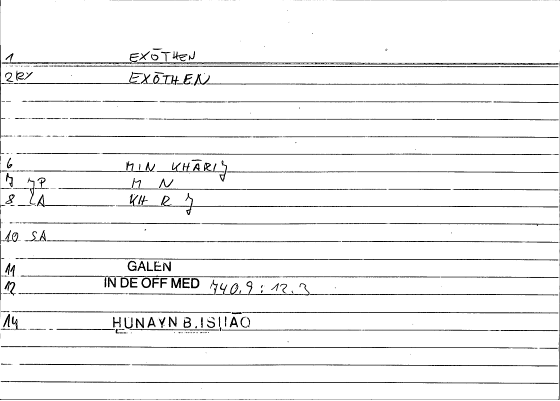 1 EXŌTHEN
2 RY EXŌTHEN
6 MIN KHĀRIJ
7 JP M N
8 LA KH R J
10 SA
11 GALEN
12 IN DE OFF MED 740.9 : 12.3
14 HUNAYN B. ISḤĀQ